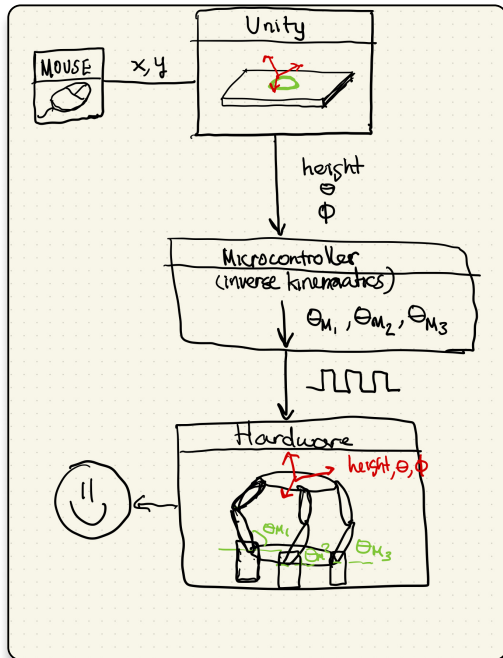 Unity
MOUSE
x, y
height
θ
ϕ
Microcontroller
(inverse kinematics)
θM₁, θM₂, θM₃
Hardware
height, θ, ϕ
θM₁
θM₂
θM₃